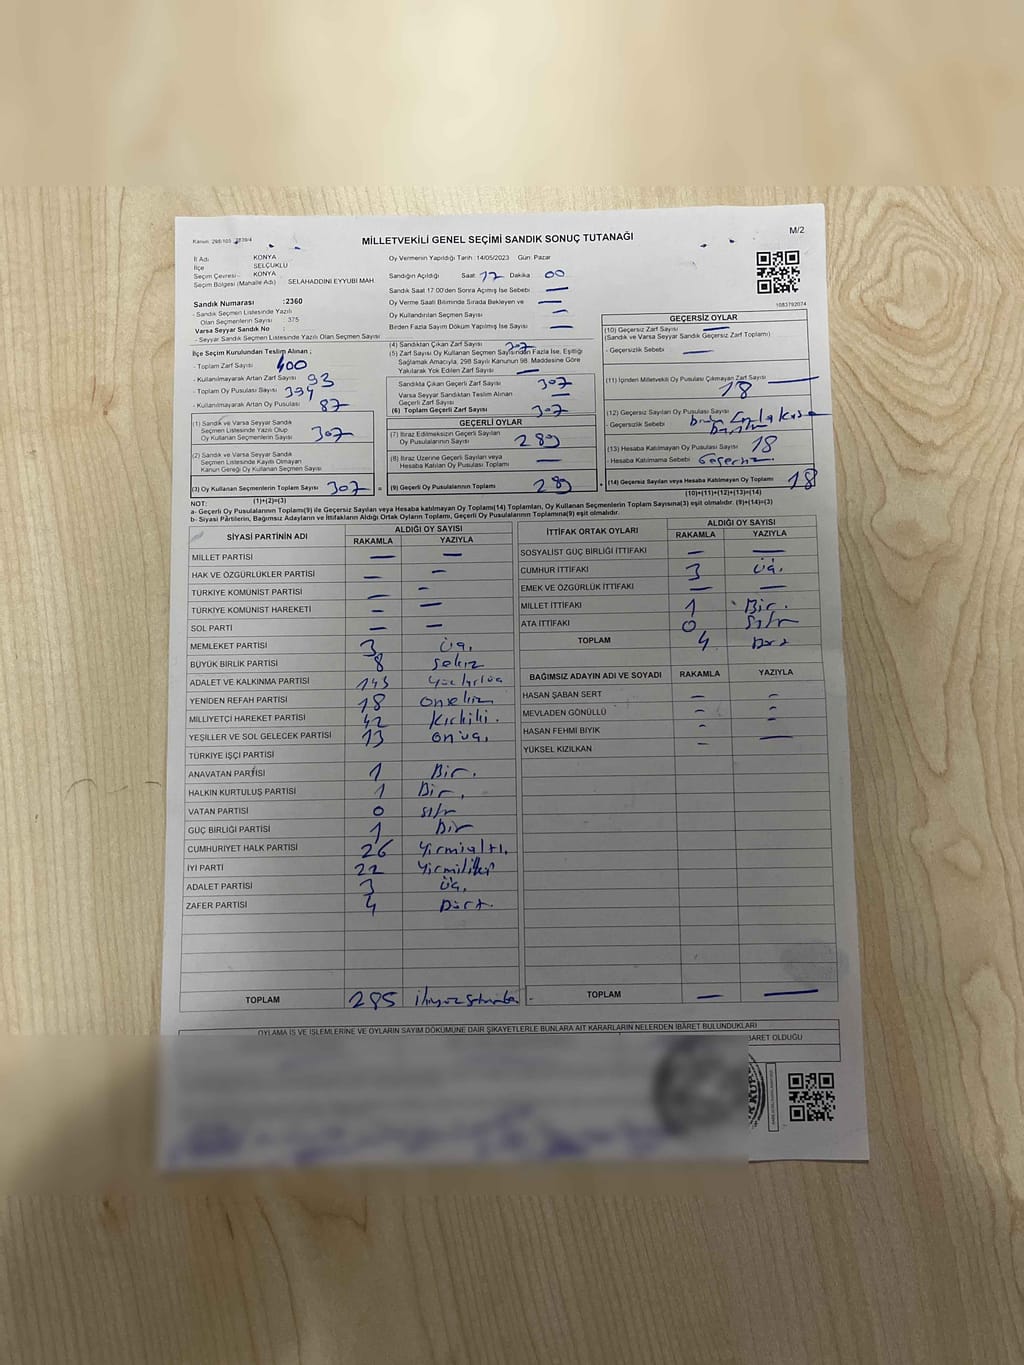 Kanun: 298/105 2839/4
M/2
MİLLETVEKİLİ GENEL SEÇİMİ SANDIK SONUÇ TUTANAĞI
İl Adı KONYA
İlçe SELÇUKLU
Seçim Çevresi KONYA
Seçim Bölgesi (Mahalle Adı) SELAHADDINI EYYUBI MAH
Sandık Numarası :2360
- Sandık Seçmen Listesinde Yazılı
Olan Seçmenlerin Sayısı : 375
Varsa Seyyar Sandık No :
- Seyyar Sandık Seçmen Listesinde Yazılı Olan Seçmen Sayısı
İlçe Seçim Kurulundan Teslim Alınan ;
- Toplam Zarf Sayısı 400
- Kullanılmayarak Artan Zarf Sayısı 93
- Toplam Oy Pusulası Sayısı 394
- Kullanılmayarak Artan Oy Pusulası 87
(1) Sandık ve Varsa Seyyar Sandık
Seçmen Listesinde Yazılı Olup
Oy Kullanan Seçmenlerin Sayısı 307
(2) Sandık ve Varsa Seyyar Sandık
Seçmen Listesinde Kayıtlı Olmayan
Kanun Gereği Oy Kullanan Seçmen Sayısı
(3) Oy Kullanan Seçmenlerin Toplam Sayısı 307 =
(1)+(2)=(3)
Oy Vermenin Yapıldığı Tarih :14/05/2023 Gün: Pazar
Sandığın Açıldığı Saat 17 Dakika 00
Sandık Saat 17:00'den Sonra Açılmış İse Sebebi —
Oy Verme Saati Bitiminde Sırada Bekleyen ve —
Oy Kullandırılan Seçmen Sayısı —
Birden Fazla Sayım Döküm Yapılmış İse Sayısı —
(4) Sandıktan Çıkan Zarf Sayısı 307
(5) Zarf Sayısı Oy Kullanan Seçmen Sayısından Fazla İse, Eşitliği
Sağlamak Amacıyla, 298 Sayılı Kanunun 98. Maddesine Göre
Yakılarak Yok Edilen Zarf Sayısı —
Sandıkta Çıkan Geçerli Zarf Sayısı 307
Varsa Seyyar Sandıktan Teslim Alınan
Geçerli Zarf Sayısı —
(6) Toplam Geçerli Zarf Sayısı 307
GEÇERLİ OYLAR
(7) İtiraz Edilmeksizin Geçerli Sayılan
Oy Pusulalarının Sayısı 289
(8) İtiraz Üzerine Geçerli Sayılan veya
Hesaba Katılan Oy Pusulası Toplamı —
(9) Geçerli Oy Pusulalarının Toplamı 289 +
1083792074
GEÇERSİZ OYLAR
(10) Geçersiz Zarf Sayısı —
(Sandık ve Varsa Seyyar Sandık Geçersiz Zarf Toplamı)
- Geçersizlik Sebebi —
(11) İçinden Milletvekili Oy Pusulası Çıkmayan Zarf Sayısı —
18
(12) Geçersiz Sayılan Oy Pusulası Sayısı
- Geçersizlik Sebebi
(13) Hesaba Katılmayan Oy Pusulası Sayısı 18
- Hesaba Katılmama Sebebi Geçersiz.
(14) Geçersiz Sayılan veya Hesaba Katılmayan Oy Toplamı 18
(10)+(11)+(12)+(13)=(14)
NOT:
a- Geçerli Oy Pusulaları Toplamı(9) ile Geçersiz Sayılan veya Hesaba katılmayan Oy Toplamı(14) Toplamları, Oy Kullanan Seçmenlerin Toplam Sayısına(3) eşit olmalıdır. (9)+(14)=(3)
b- Siyasi Partilerin, Bağımsız Adayların ve İttifakların Aldığı Ortak Oyların Toplamı, Geçerli Oy Pusulalarının Toplamına(9) eşit olmalıdır.
SİYASİ PARTİNİN ADI ALDIĞI OY SAYISI
RAKAMLA YAZIYLA
MİLLET PARTİSİ — —
HAK VE ÖZGÜRLÜKLER PARTİSİ — —
TÜRKİYE KOMÜNİST PARTİSİ — —
TÜRKİYE KOMÜNİST HAREKETİ — —
SOL PARTİ — —
MEMLEKET PARTİSİ 3 üç.
BÜYÜK BİRLİK PARTİSİ 8 sekiz
ADALET VE KALKINMA PARTİSİ 143 Yüzkırküç
YENİDEN REFAH PARTİSİ 18 onsekiz
MİLLİYETÇİ HAREKET PARTİSİ 42 kırkiki.
YEŞİLLER VE SOL GELECEK PARTİSİ 13 onüç.
TÜRKİYE İŞÇİ PARTİSİ
ANAVATAN PARTİSİ 1 Bir.
HALKIN KURTULUŞ PARTİSİ 1 Bir.
VATAN PARTİSİ 0 sıfır
GÜÇ BİRLİĞİ PARTİSİ 1 Bir
CUMHURİYET HALK PARTİSİ 26 Yirmialtı.
İYİ PARTİ 22 Yirmiiki
ADALET PARTİSİ 3 üç.
ZAFER PARTİSİ 4 Dört.
TOPLAM 285 ikiyüzseksenbeş
İTTİFAK ORTAK OYLARI ALDIĞI OY SAYISI
RAKAMLA YAZIYLA
SOSYALİST GÜÇ BİRLİĞİ İTTİFAKI — —
CUMHUR İTTİFAKI 3 üç.
EMEK VE ÖZGÜRLÜK İTTİFAKI — —
MİLLET İTTİFAKI 1 Bir.
ATA İTTİFAKI 0 sıfır
TOPLAM 4 Dört
BAĞIMSIZ ADAYIN ADI VE SOYADI RAKAMLA YAZIYLA
HASAN ŞABAN SERT — —
MEVLADEN GÖNÜLLÜ — —
HASAN FEHMİ BIYIK — —
YUKSEL KIZILKAN — —
TOPLAM — —
OYLAMA İŞ VE İŞLEMLERİNE VE OYLARIN SAYIM DÖKÜMÜNE DAİR ŞİKAYETLERLE BUNLARA AİT KARARLARIN NELERDEN İBARET BULUNDUKLARI
BARET OLDUĞU